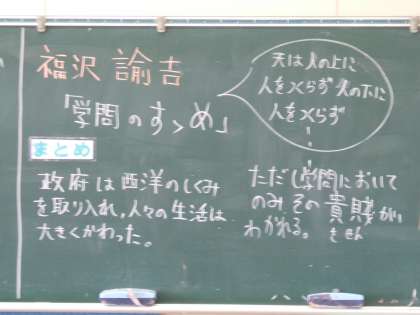 福沢諭吉
「学問のすゝめ」
天は人の上に
人をつくらず人の下に
人をつくらず
まとめ
政府は西洋のしくみ
を取り入れ、人々の生活は
大きくかわった。
ただし学問において
のみその貴賤が
わかれる。
きせん